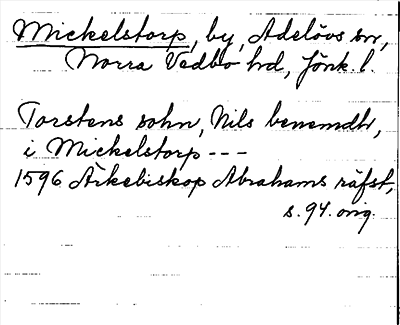 Mickelstorp, by, Adelövs sn,
Norra Vedbo hd, Jönk. l.
Torstens sohn, Nils benemdhr,
i Mickelstorp ---
1596 Ärkebiskop Abrahams räfst,
s. 94. orig.